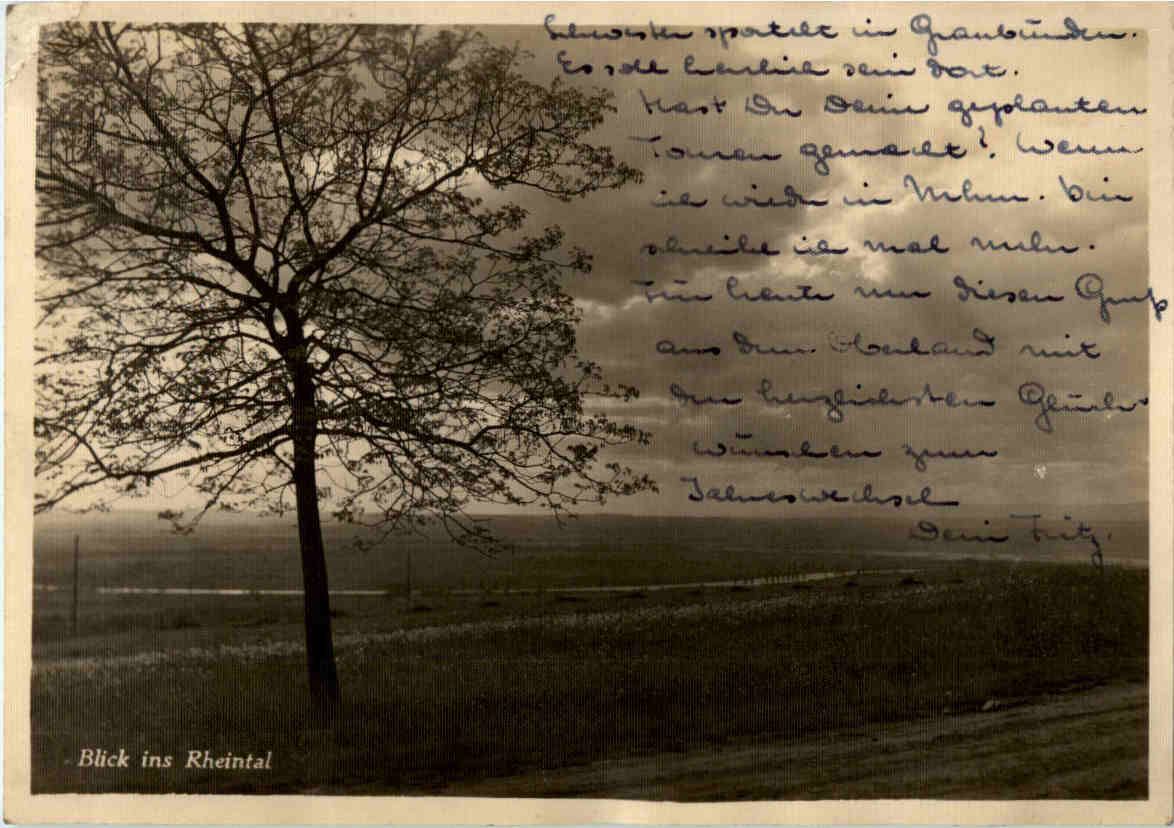 Schwester sportelt in Graubünden.
Es soll herrlich sein dort.
Hast Du Deine geplanten
Touren gemacht? Wenn
ich wieder in Mchn. bin
schreibe ich mal mehr.
Für heute nur diesen Gruß
aus dem Oberland mit
den herzlichsten Glück-
wünschen zum
Jahreswechsel
Dein Fritz.
Blick ins Rheintal